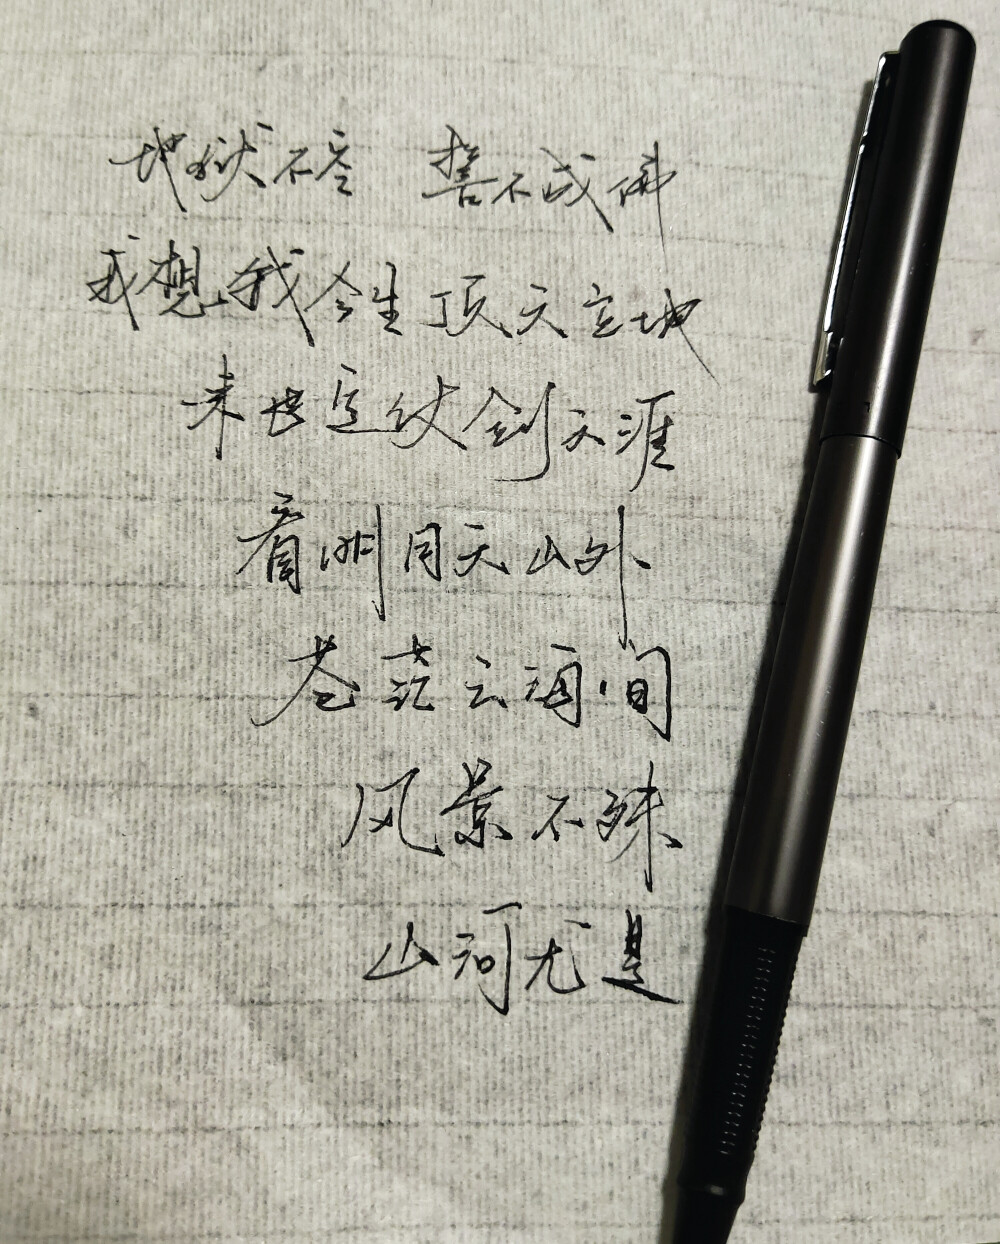 地狱不空 誓不成佛
我想我今生顶天立地
来世定仗剑天涯
看明月天山外
苍茫云海间
风景不殊
山河尤是